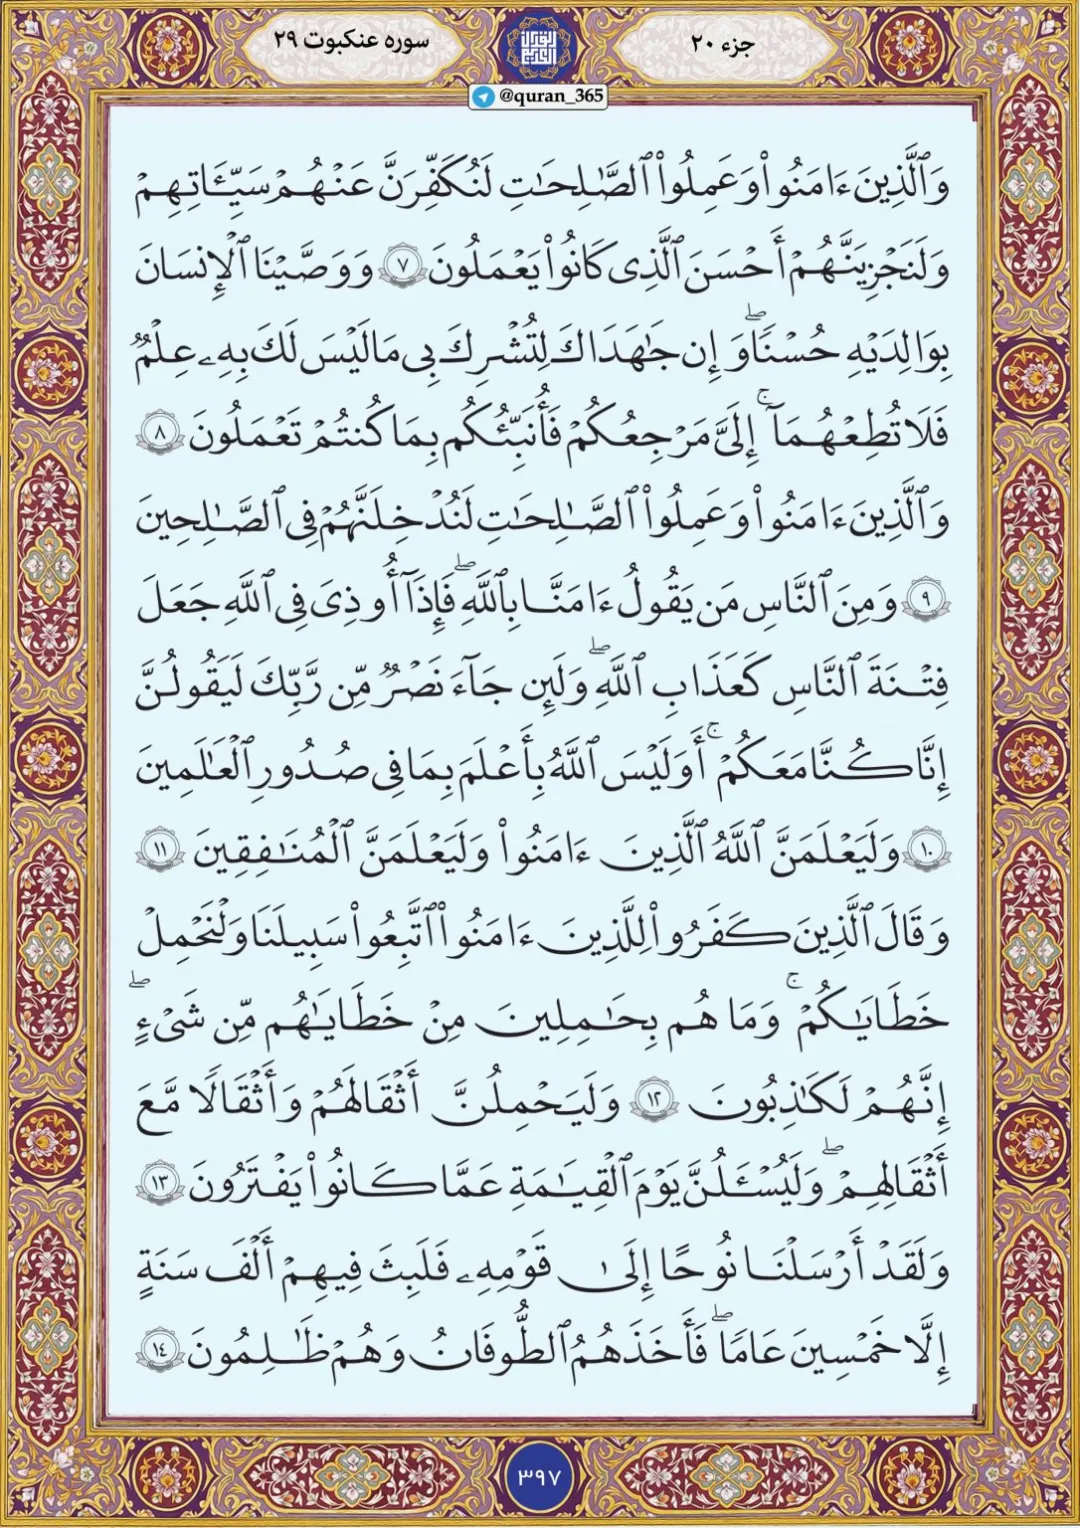 جزء ۲۰
سوره عنکبوت ۲۹
@quran_365
وَٱلَّذِينَ ءَامَنُوا۟ وَعَمِلُوا۟ ٱلصَّـٰلِحَـٰتِ لَنُكَفِّرَنَّ عَنْهُمْ سَيِّـَٔاتِهِمْ
وَلَنَجْزِيَنَّهُمْ أَحْسَنَ ٱلَّذِى كَانُوا۟ يَعْمَلُونَ ٧ وَوَصَّيْنَا ٱلْإِنسَانَ
بِوَالِدَيْهِ حُسْنًۭا ۖ وَإِن جَـٰهَدَاكَ لِتُشْرِكَ بِى مَا لَيْسَ لَكَ بِهِۦ عِلْمٌۭ
فَلَا تُطِعْهُمَآ ۚ إِلَىَّ مَرْجِعُكُمْ فَأُنَبِّئُكُم بِمَا كُنتُمْ تَعْمَلُونَ ٨
وَٱلَّذِينَ ءَامَنُوا۟ وَعَمِلُوا۟ ٱلصَّـٰلِحَـٰتِ لَنُدْخِلَنَّهُمْ فِى ٱلصَّـٰلِحِينَ
٩ وَمِنَ ٱلنَّاسِ مَن يَقُولُ ءَامَنَّا بِٱللَّهِ ۖ فَإِذَآ أُوذِىَ فِى ٱللَّهِ جَعَلَ
فِتْنَةَ ٱلنَّاسِ كَعَذَابِ ٱللَّهِ ۖ وَلَئِن جَآءَ نَصْرٌۭ مِّن رَّبِّكَ لَيَقُولُنَّ
إِنَّا كُنَّا مَعَكُمْ ۚ أَوَلَيْسَ ٱللَّهُ بِأَعْلَمَ بِمَا فِى صُدُورِ ٱلْعَـٰلَمِينَ
١٠ وَلَيَعْلَمَنَّ ٱللَّهُ ٱلَّذِينَ ءَامَنُوا۟ وَلَيَعْلَمَنَّ ٱلْمُنَـٰفِقِينَ ١١
وَقَالَ ٱلَّذِينَ كَفَرُوا۟ لِلَّذِينَ ءَامَنُوا۟ ٱتَّبِعُوا۟ سَبِيلَنَا وَلْنَحْمِلْ
خَطَـٰيَـٰكُمْ ۚ وَمَا هُم بِحَـٰمِلِينَ مِنْ خَطَـٰيَـٰهُم مِّن شَىْءٍ ۖ
إِنَّهُمْ لَكَـٰذِبُونَ ١٢ وَلَيَحْمِلُنَّ أَثْقَالَهُمْ وَأَثْقَالًۭا مَّعَ
أَثْقَالِهِمْ ۖ وَلَيُسْـَٔلُنَّ يَوْمَ ٱلْقِيَـٰمَةِ عَمَّا كَانُوا۟ يَفْتَرُونَ ١٣
وَلَقَدْ أَرْسَلْنَا نُوحًا إِلَىٰ قَوْمِهِۦ فَلَبِثَ فِيهِمْ أَلْفَ سَنَةٍ
إِلَّا خَمْسِينَ عَامًۭا ۖ فَأَخَذَهُمُ ٱلطُّوفَانُ وَهُمْ ظَـٰلِمُونَ ١٤
۳۹۷